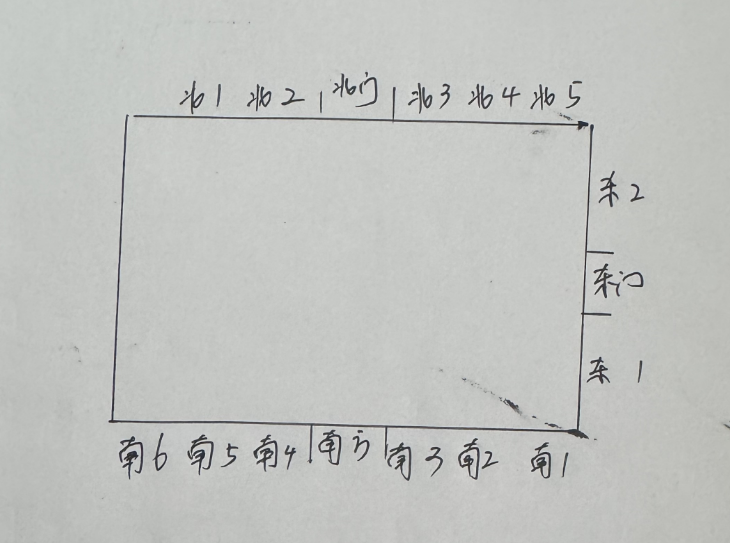 北1 北2 北门 北3 北4 北5
东2
东门
东1
南6 南5 南4 南门 南3 南2 南1